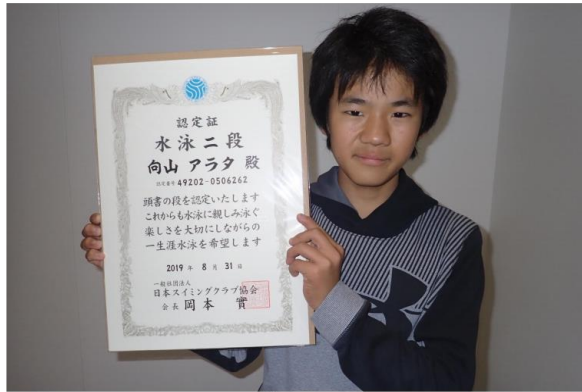 認定証
水泳二段
向山 アラタ 殿
認定番号 49202-0506262
頭書の段を認定いたします
これからも水泳に親しみ泳ぐ
楽しさを大切にしながらの
一生涯水泳を希望します
2019 年 8 月 31 日
一般社団法人
日本スイミングクラブ協会
会長 岡本 實